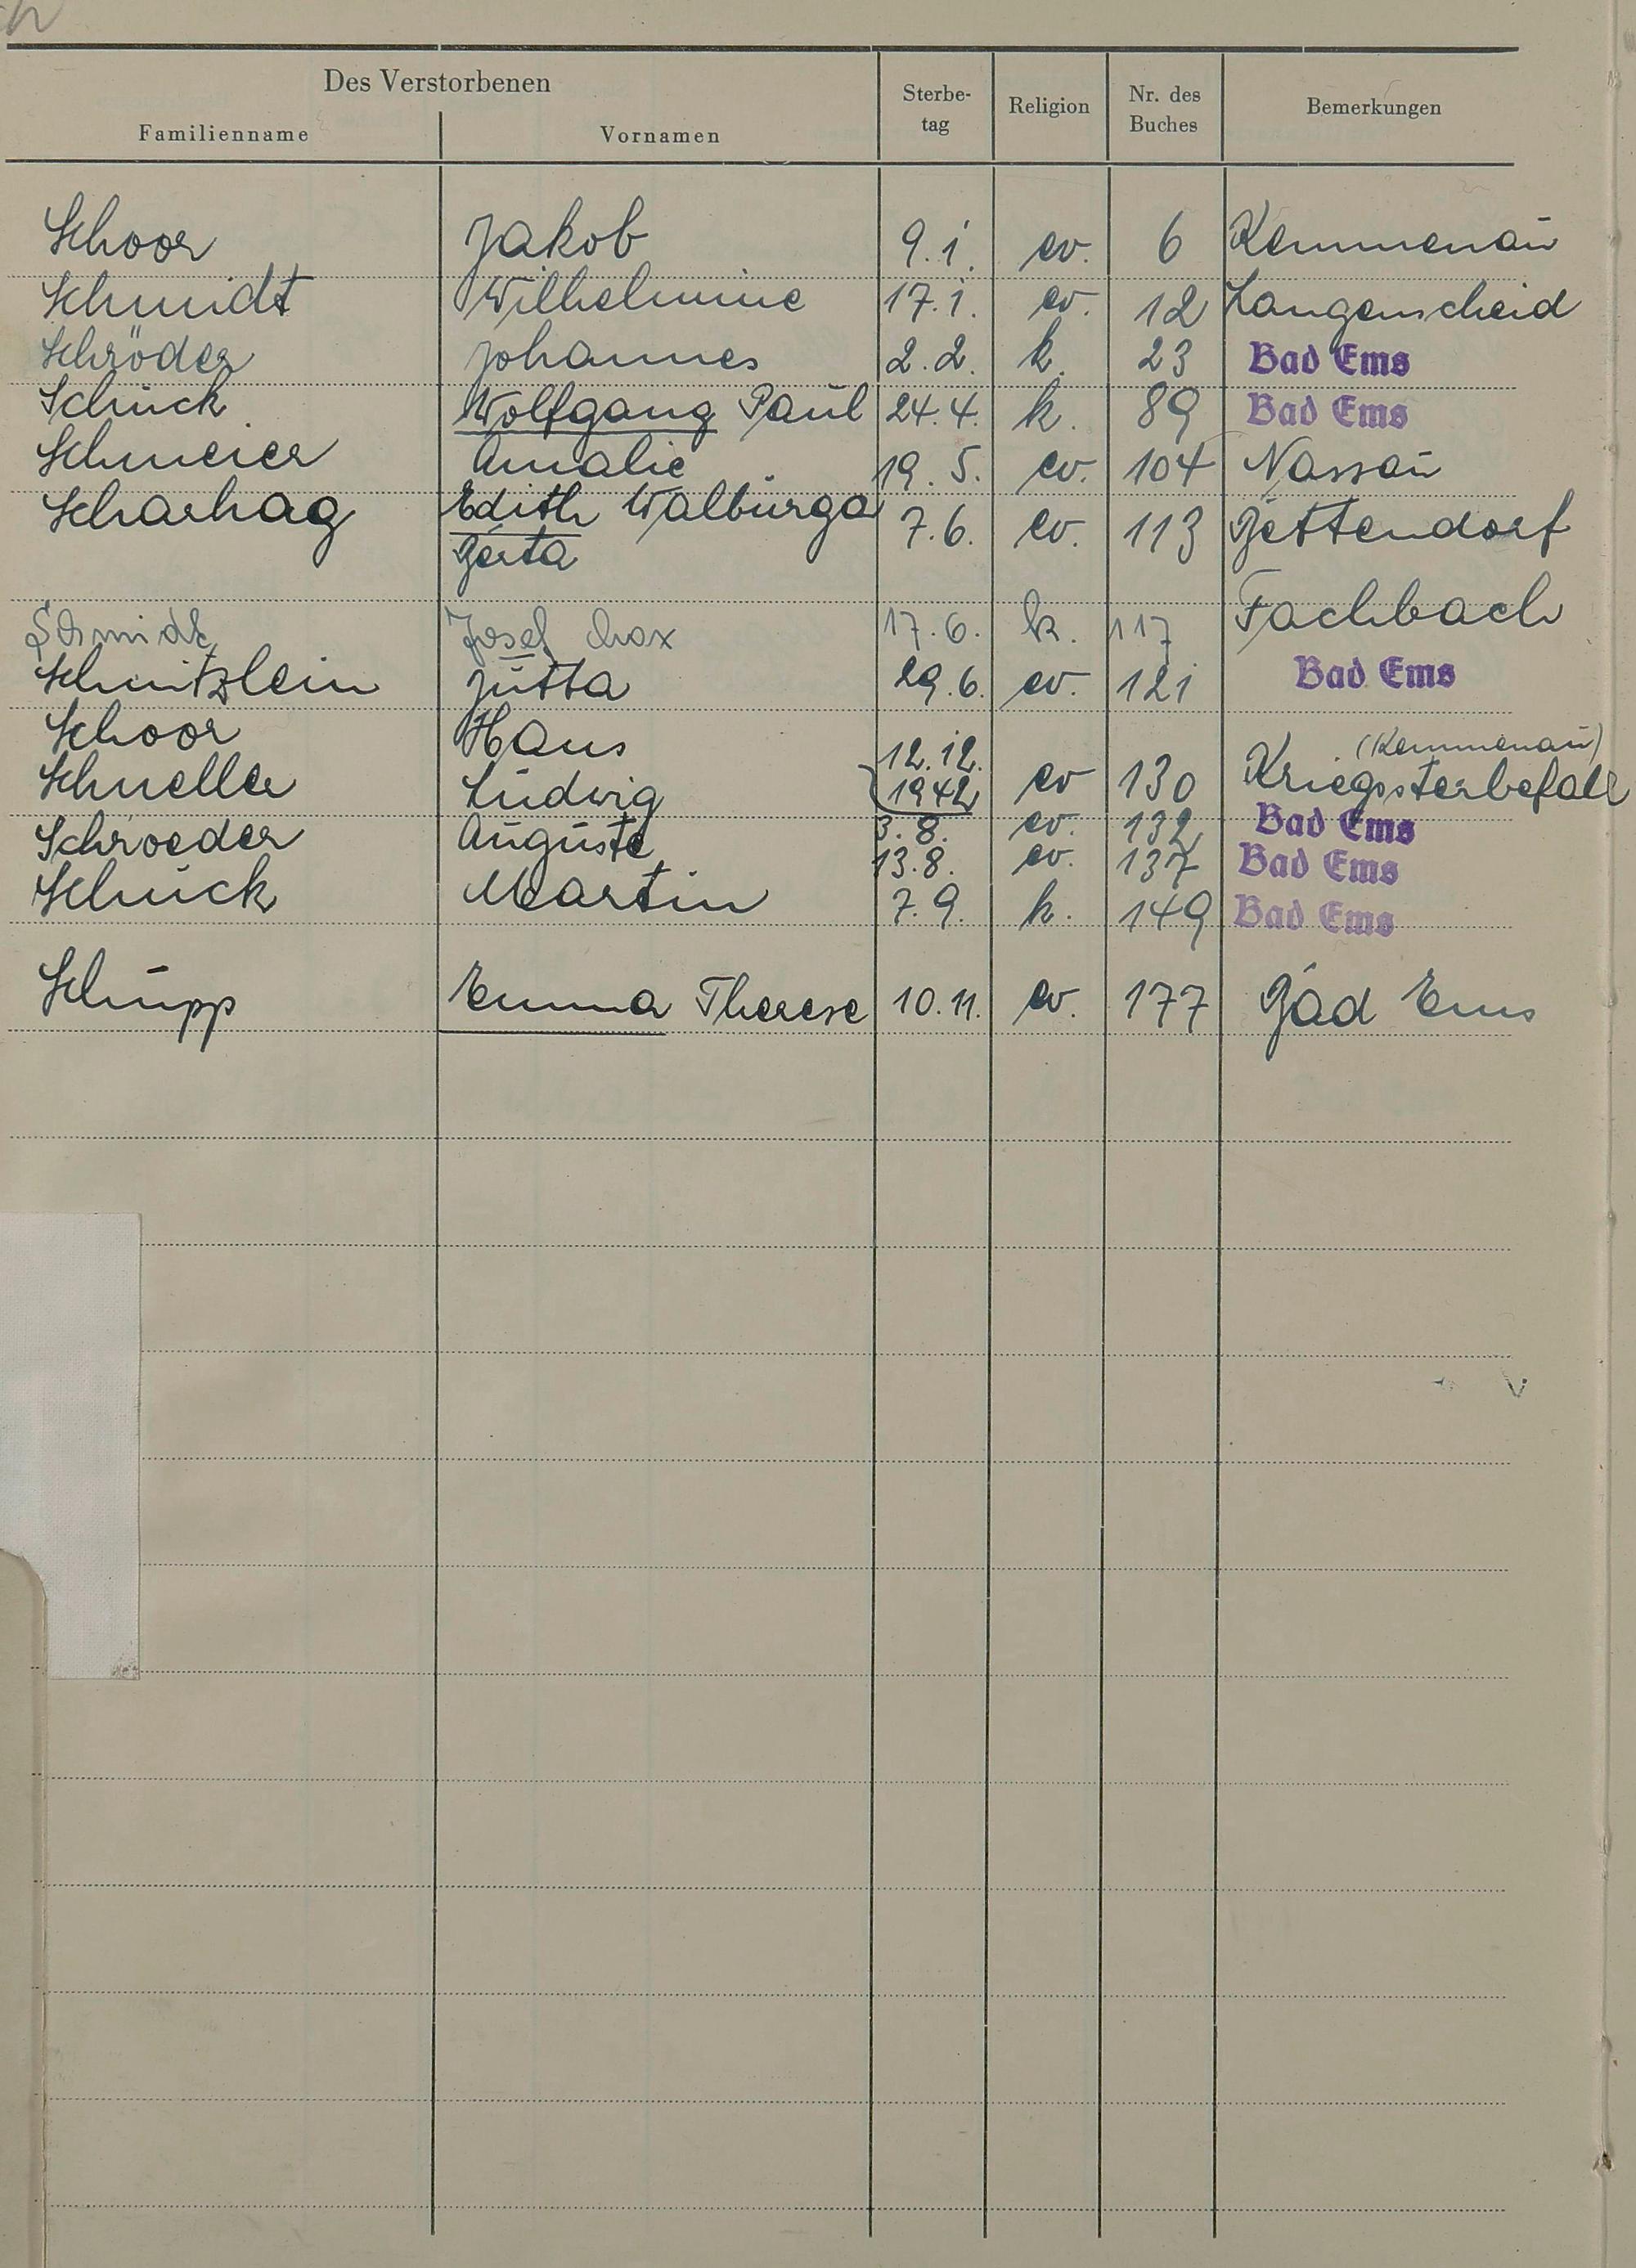 Des Verstorbenen
Familienname Vornamen Sterbe-tag Religion Nr. des Buches Bemerkungen
Schoor Jakob 9.1. ev. 6 Kemmenau
Schmidt Wilhelmine 17.1. ev. 12 Langenscheid
Schröder Johannes 2.2. k. 23 Bad Ems
Schuck Wolfgang Paul 24.4. k. 89 Bad Ems
Schmeier Amalie 19.5. ev. 104 Nassau
Scharhag Edith Walburga 7.6. ev. 113 Gettendorf
Gerta
Schmidt Josef 17.6. k. 117 Fachbach
Schmitzlein Jutta 29.6. ev. 121 Bad Ems
Schoor Hans 12.12. 1942 ev 130 (Kemmenau) Kriegssterbefall
Schneller Ludwig 3.8. ev. 132 Bad Ems
Schroeder Auguste 13.8. ev. 137 Bad Ems
Schuck Martin 7.9. k. 149 Bad Ems
Schupp Emma Therese 10.11. ev. 177 Bad Ems